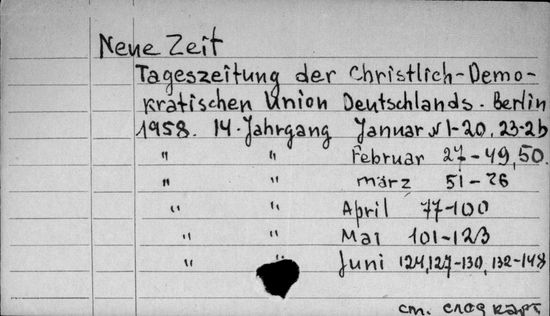 Neue Zeit
Tageszeitung der Christlich-Demo-
kratischen Union Deutschlands. Berlin
1958. 14. Jahrgang Januar N 1-20, 23-26
" " Februar 27-49, 50.
" " März 51-76
" " April 77-100
" " Mai 101-123
" " Juni 124, 127-130, 132-148
см. след карт.